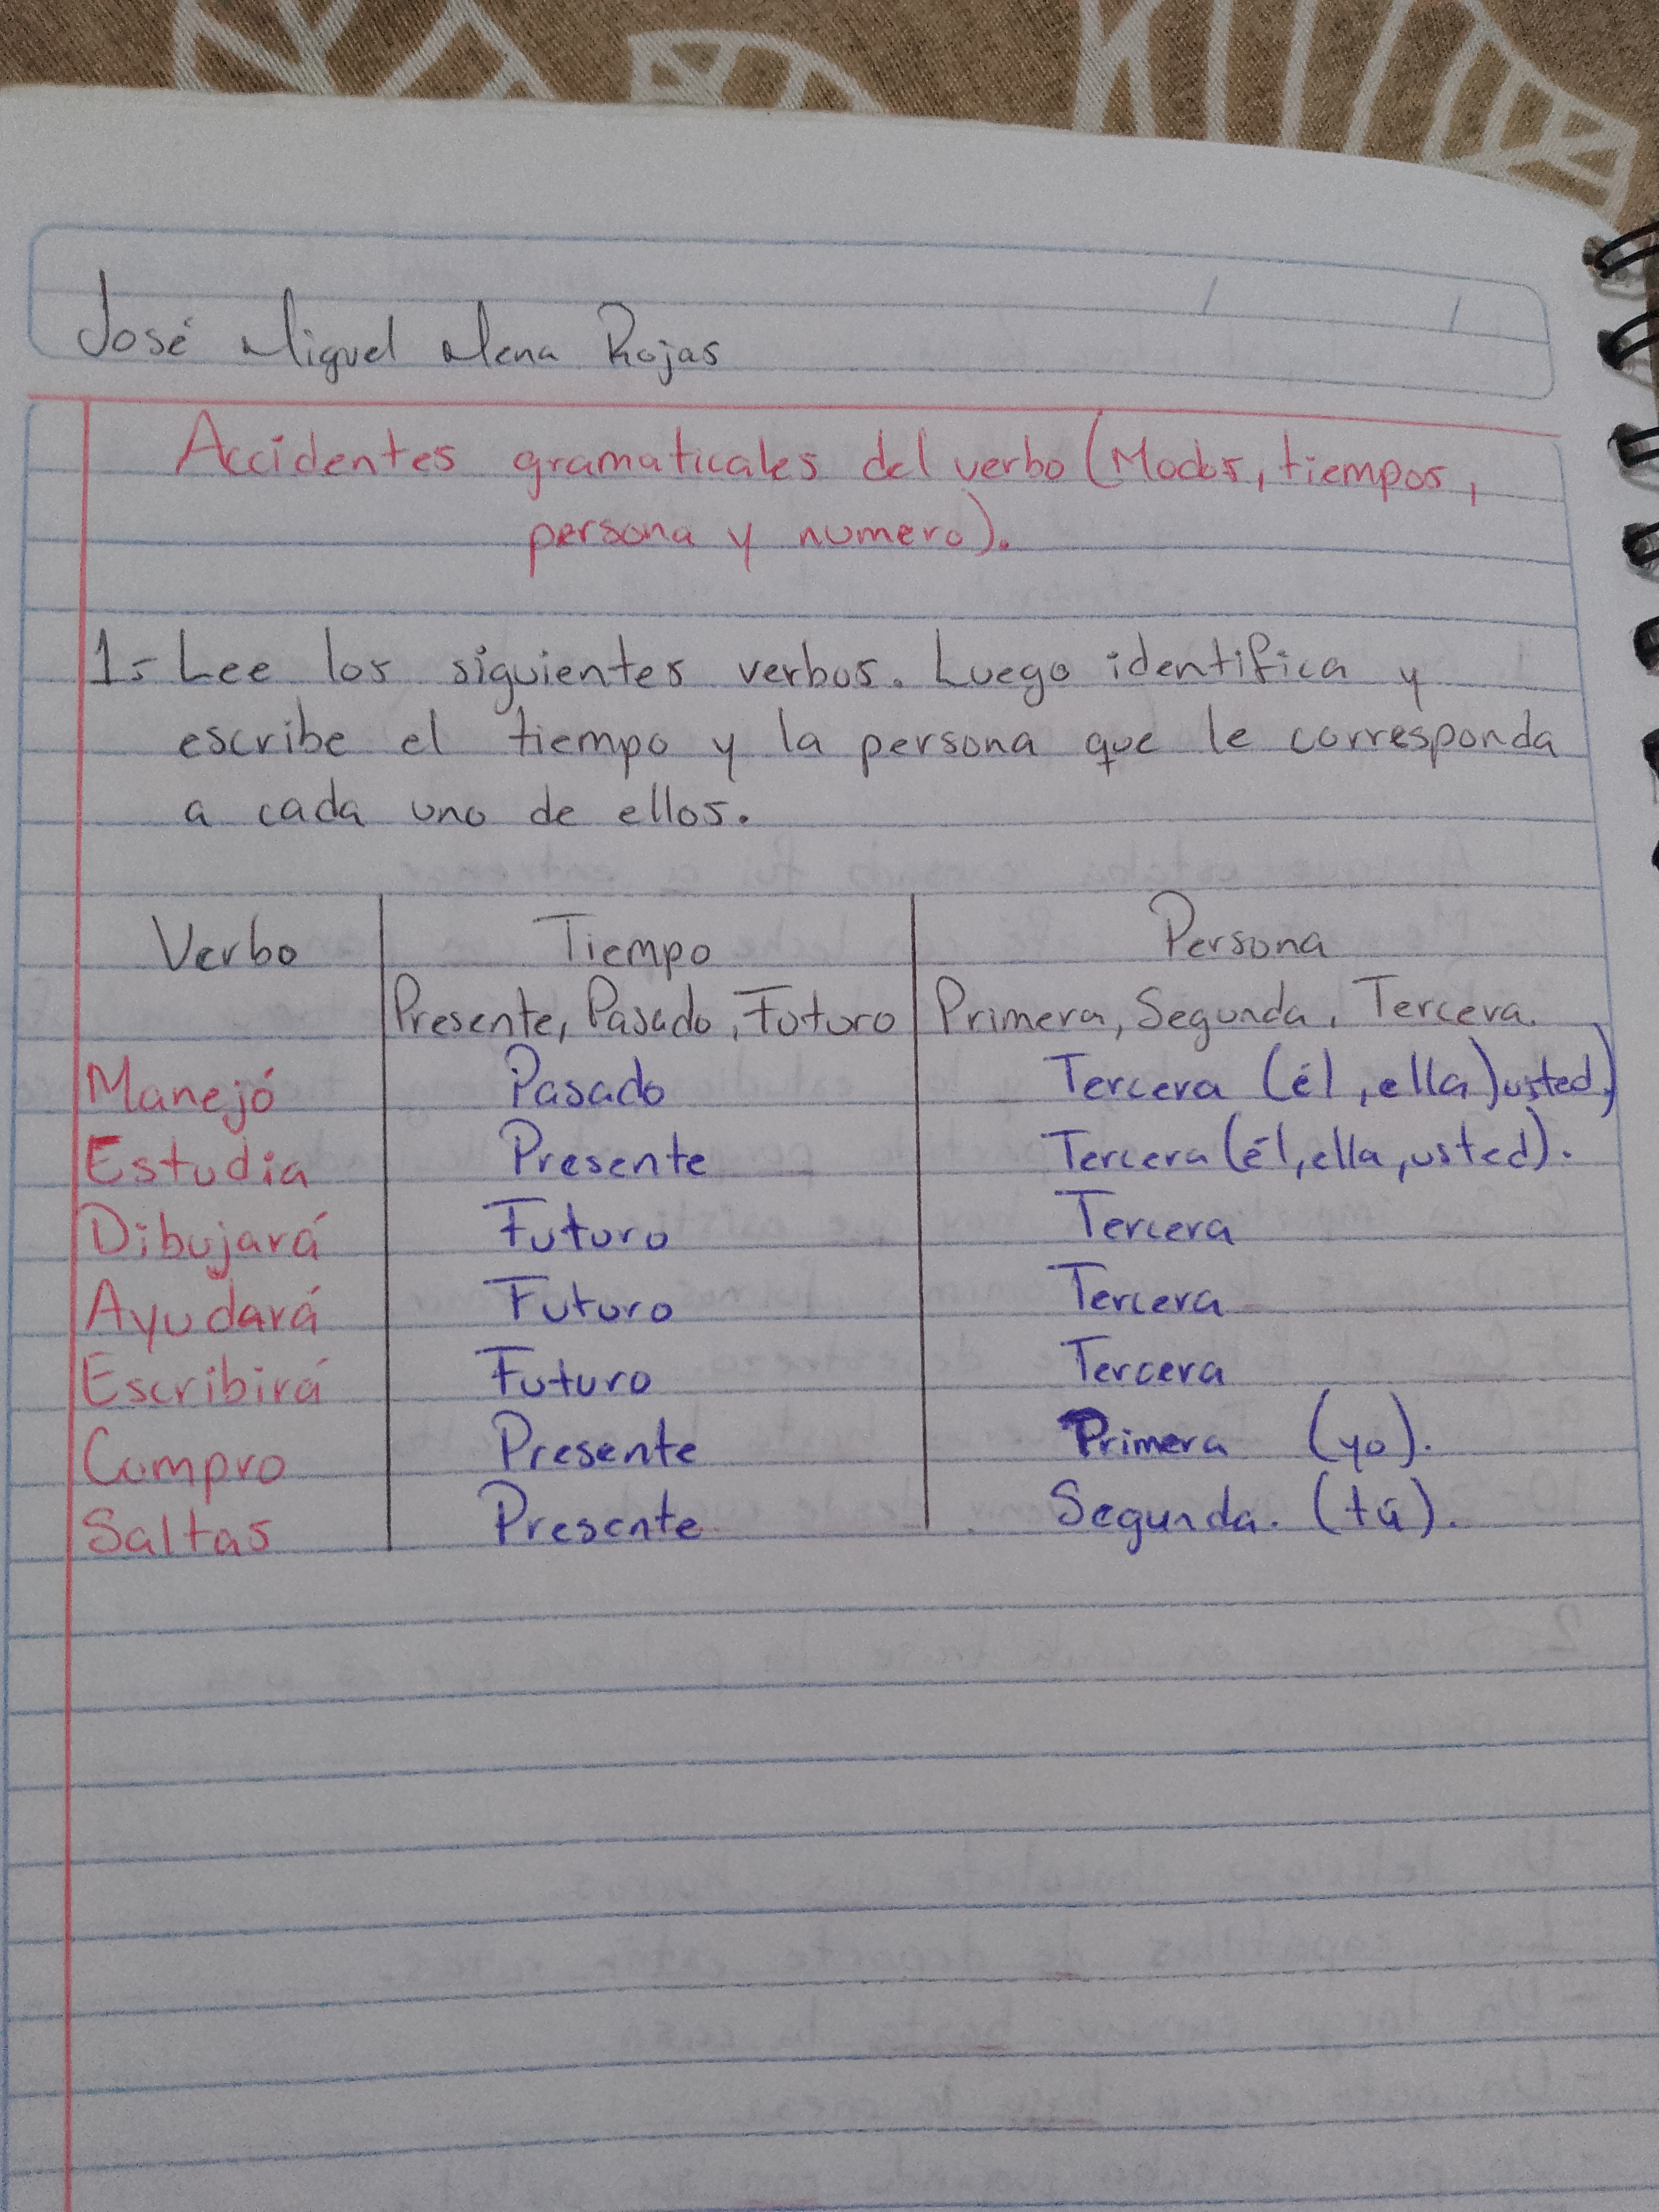 José Miguel Mena Rojas
Accidentes gramaticales del verbo (Modos, tiempos,
persona y numero).
1- Lee los siguientes verbos. Luego identifica y
escribe el tiempo y la persona que le corresponda
a cada uno de ellos.
Verbo Tiempo Persona
Presente, Pasado, Futuro Primera, Segunda, Tercera.
Manejó Pasado Tercera (él, ella) usted)
Estudia Presente Tercera (él, ella, usted).
Dibujará Futuro Tercera
Ayudará Futuro Tercera
Escribirá Futuro Tercera
Compro Presente Primera (yo).
Saltas Presente Segunda. (tú).